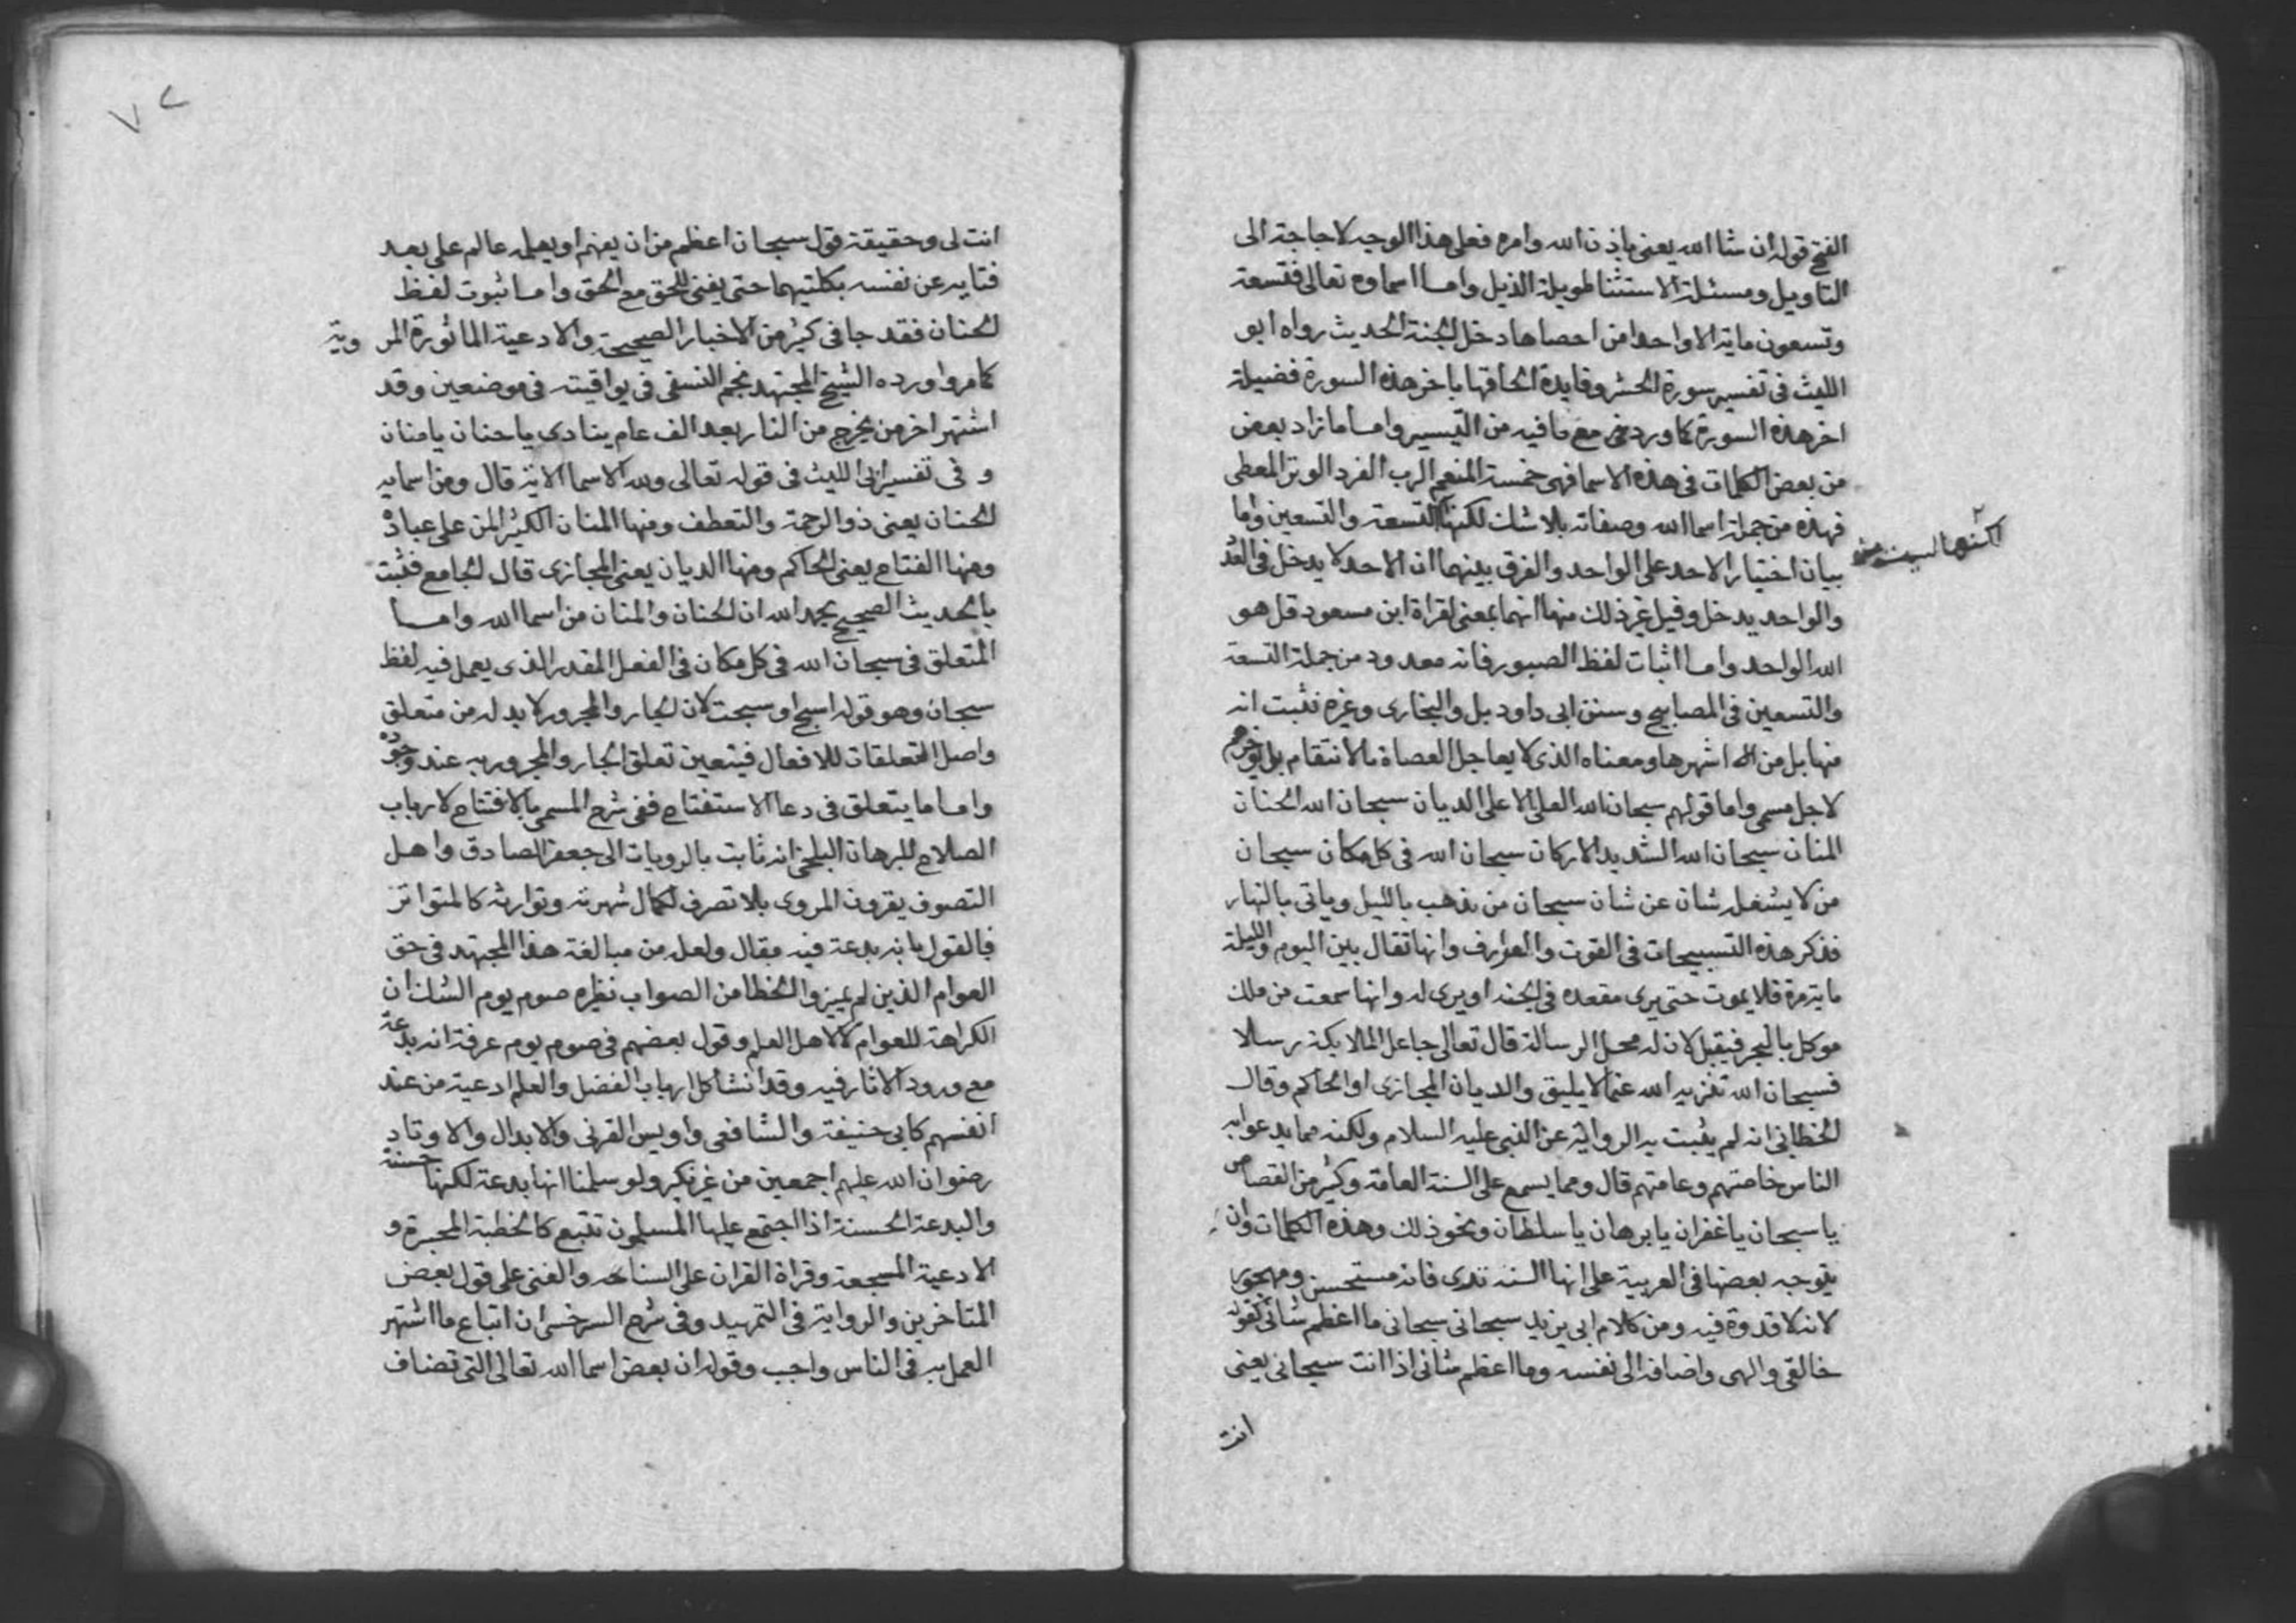 الفتح قوله ان شا الله يعنى باذن الله وامره فعلى هذا الوجه لا حاجة الى
التاويل ومسئلة الاستثنا لطويلة الذيل واما اسماوه تعالى فتسعة
وتسعون ماية الا واحدا من احصاها دخل الجنة الحديث رواه ابو
الليث فى تفسير سورة الحشر وفايدة الحاقها باخر هذه السورة فضيلة
اخر هذه السورة كما ورد مع ما فيه من التيسير واما ما زاد بعض
من بعض الكلمات فى هذه الاسما فهى خمسة المنعم الرب الفرد الوتر المعطى
فهذه من جملة اسما الله وصفاته بلا شك لكنها التسعة والتسعين واما
لكنها ليست من
بيان اختيار الاحد على الواحد والفرق بينهما ان الاحد لا يدخل فى العد
والواحد يدخل وقيل غير ذلك منها انهما بمعنى لقراة ابن مسعود قل هو
الله الواحد واما اثبات لفظ الصبور فانه معدود من جملة التسعة
والتسعين فى المصابيح وسنن ابى داود بل والبخارى وغيره فثبت انه
منها بل من اشهرها ومعناه الذى لا يعاجل العصاة بالانتقام بل يوخرهم
لاجل مسمى واما قولهم سبحان الله العلى الاعلى الديان سبحان الله الحنان
المنان سبحان الله الشديد الاركان سبحان الله فى كل مكان سبحان
من لا يشغله شان عن شان سبحان من يذهب بالليل وياتى بالنهار
فذكر هذه التسبيحات فى القوت والعوارف وانها تقال بين اليوم والليلة
ماية مرة فلا يموت حتى يرى مقعده فى الجنة او يرى له وانها سمعت من ملك
موكل بالبحر فيقبل لان له محل الرسالة قال تعالى جاعل الملايكة رسلا
فسبحان الله تنزيه الله عما لا يليق والديان المجازى او الحاكم وقال
الخطابى انه لم يثبت به الرواية عن النبى عليه السلام ولكنه مما يدعوا به
الناس خاصتهم وعامتهم قال ومما يسمع على السنة العامة وكثير من القصاص
يا سبحان يا غفران يا برهان يا سلطان ونحو ذلك وهذه الكلمات وان
يتوجه بعضها فى العربية على انها السنه فانه مستحسن ومهجور
لانه لا قدوة فيه ومن كلام ابى يزيد سبحانى سبحانى ما اعظم شانى كقوله
خالقى والهى واضافه الى نفسه وما اعظم شانى اذا انت سبحانى يعنى
انت
٧٢
انت لى وحقيقة قول سبحان اعظم من ان يفهم او يعلمه عالم على بعد
فتايه عن نفسه بكلتيهما حتى يفنى للحق مع الحق واما ثبوت لفظ
الحنان فقد جا فى كثير من الاخبار الصحيحة والادعية الماثورة المروية
كما مر واورده الشيخ المجتهد نجم النسفى فى يواقيته فى موضعين وقد
اشتهر اخر من يخرج من النار بعد الف عام ينادى يا حنان يا منان
وفى تفسير ابى الليث فى قوله تعالى ولله الاسما الاية قال ومن اسمايه
الحنان يعنى ذو الرحمة والتعطف ومنها المنان الكثير المن على عباده
ومنها الفتاح يعنى الحاكم ومنها الديان يعنى المجازى قال الجامع فثبت
بالحديث الصحيح بحمد الله ان الحنان والمنان من اسما الله واما
المتعلق فى سبحان الله فى كل مكان فى الفعل المقدر الذى يعمل فيه لفظ
سبحان وهو قوله اسبح او سبحت لان الجار والمجرور لا بد له من متعلق
واصل المتعلقات للافعال فيتعين تعلق الجار والمجرور به عند وجوده
واما ما يتعلق فى دعا الاستفتاح ففى شرح المسمى بالافتتاح لارباب
الصلاح للبرهان البلخى انه ثابت بالرويات الى جعفر الصادق واهل
التصوف يقرون المروى بلا تصرف لكمال شهرته وتوارثه كالمتواتر
فالقول بانه بدعة فيه مقال ولعله من مبالغة هذا المجتهد فى حق
العوام الذين لم يميزوا الخطا من الصواب نظيره صوم يوم الشك ان
الكراهة للعوام لا لاهل العلم وقول بعضهم فى صوم يوم عرفة انه بدعة
مع ورود الاثار فيه وقد انشا كل ارباب الفضل والعلم ادعية من عند
انفسهم كابى حنيفة والشافعى واويس القرنى والابدال والاوتاد
رضوان الله عليهم اجمعين من غير نكير ولو سلمنا انها بدعة لكنها حسنة
والبدعة الحسنة اذا اجتمع عليها المسلمون تتبع كالخطبة و
الادعية المسجعة وقراة القران على والفتى على قول بعض
المتاخرين والرواية فى التمهيد وفى شرح السرخسى ان اتباع ما اشتهر
العمل به فى الناس واجب وقوله ان بعض اسما الله تعالى التى تضاف